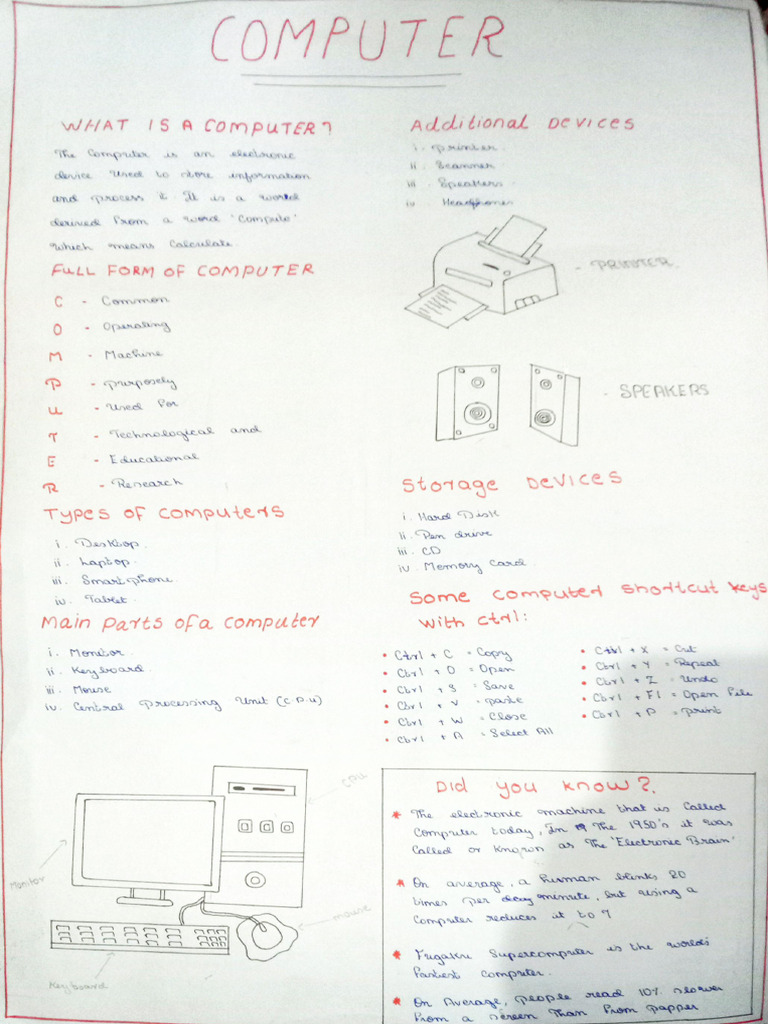 COMPUTER
WHAT IS A COMPUTER?
The Computer is an electronic
device Used to store information
and process it. It is a world
derived from a word 'Compute'
which means Calculate.
FULL FORM OF COMPUTER
C - Common
O - Operating
M - Machine
P - purposely
U - Used for
T - Technological and
E - Educational
R - Research
Types of computers
i. Desktop.
ii. Laptop.
iii. Smartphone.
iv. Tablet.
Main parts of a computer
i. Monitor.
ii. Keyboard.
iii. Mouse
iv. Central Processing Unit (C.P.U)
CPU
Monitor
mouse
Keyboard
Additional Devices
i. printer.
ii. Scanner
iii. Speakers.
iv. Headphones
- PRINTER.
- SPEAKERS
Storage Devices
i. Hard Disk
ii. Pen drive
iii. CD
iv. Memory Card
Some computer shortcut keys
with ctrl:
• Ctrl + C = Copy
• Ctrl + O = Open
• Ctrl + S = Save
• Ctrl + V = paste
• Ctrl + W = Close
• Ctrl + A = Select All
• Ctrl + X = Cut
• Ctrl + Y = Repeat
• Ctrl + Z = Undo
• Ctrl + F1 = Open File
• Ctrl + P = print
Did you know?.
* The electronic machine that is Called
Computer today, In The 1950's it was
Called or known as The 'Electronic Brain'
* On average, a human blinks 20
times per minute, but using a
Computer reduces it to 7
* Fugaku Supercomputer is the worlds'
Fastest computer.
* On Average, people read 10% slower
From a screen Than From papper